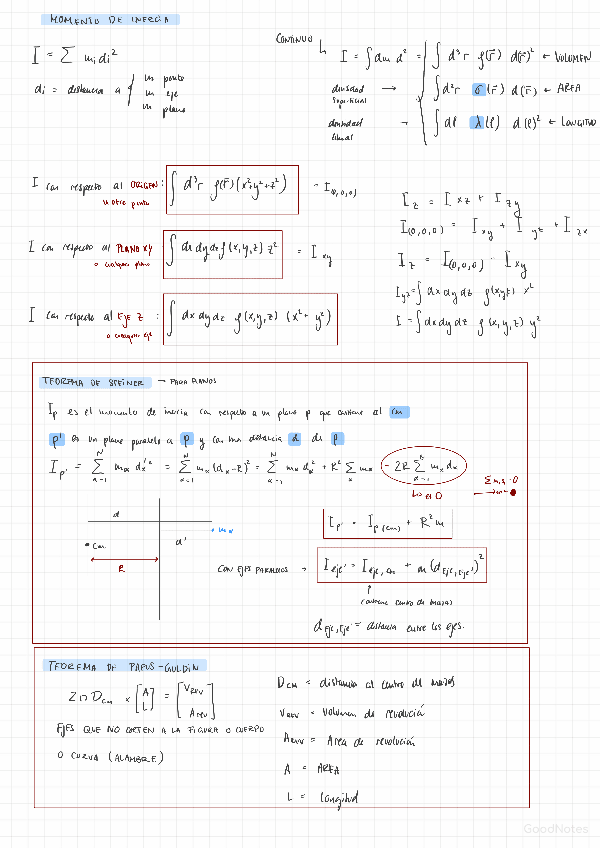 MOMENTO DE INERCIA
I = ∑ mᵢdᵢ²
di = distancia a { un punto
un eje
un plano
CONTINUO ↳ I = ∫ dm d² = { ∫ d³r ρ(r̄) d(r̄)² ← VOLUMEN
densidad superficial → ∫ d²r σ(r̄) d(r̄) ← AREA
densidad lineal → ∫ dl λ(l) d(l)² ← LONGITUD
I con respecto al ORIGEN: ∫ d³r ρ(r̄) (x²+y²+z²) = I(0,0,0)
u otro punto
I con respecto al PLANO XY ∫ dx dy dz ρ(x,y,z) z² = I xy
o cualquier plano
I con respecto al EJE Z : ∫ dx dy dz ρ(x,y,z) (x² + y²)
o cualquier eje
I z = I xz + I zy
I(0,0,0) = I xy + I yz + I zx
I z = I(0,0,0) - I xy
I yz = ∫ dx dy dz ρ(x,y,z) x²
I = ∫ dx dy dz ρ(x,y,z) y²
TEOREMA DE STEINER → PARA PLANOS
Ip es el momento de inercia con respecto a un plano p que contiene al cm
p' es un plano paralelo a p y con una distancia d de p
I p' = ∑ mα dα'² = ∑ mα (dα-R)² = ∑ mα dα² + R² ∑ mα - 2R ∑ mα dα
α=1 N
↳ es 0
d
mα
cm
d'
R
I p' = I p(cm) + R² m
CON EJES PARALELOS → I eje' = I eje, cm + m (d eje, eje')²
(contiene centro de masa)
d eje, eje' = distancia entre los ejes.
TEOREMA DE PAPUS-GULDIN
2 π D cm × [A L] = [V REV A rev]
EJES QUE NO CORTEN A LA FIGURA O CUERPO
O CURVA (ALAMBRE)
D cm = distancia al centro de masas
V rev = Volumen de revolución
A rev = Area de revolución
A = AREA
L = Longitud
GoodNotes